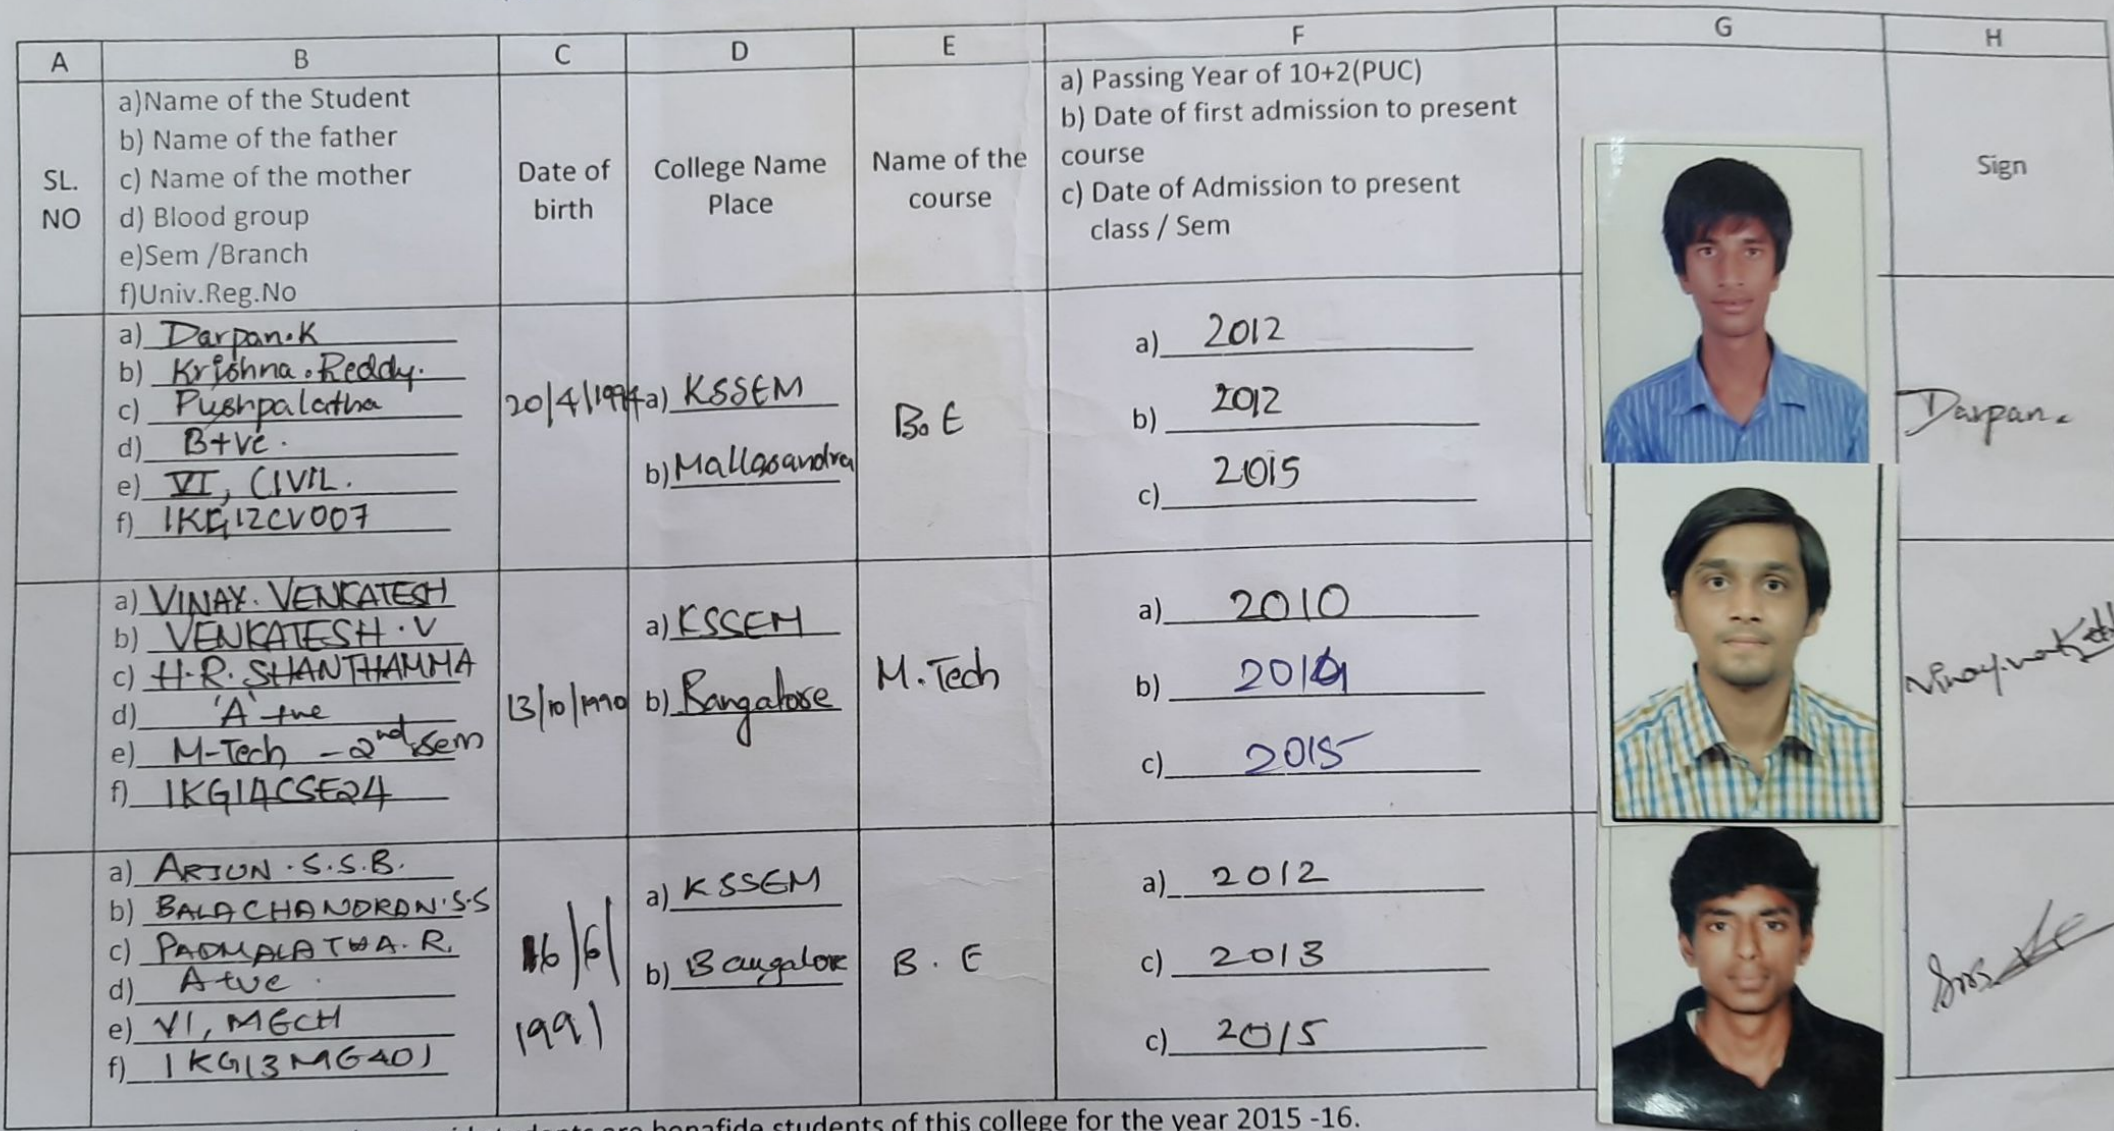 A B C D E F G H
SL. NO
a)Name of the Student
b) Name of the father
c) Name of the mother
d) Blood group
e)Sem /Branch
f)Univ.Reg.No
Date of birth
College Name Place
Name of the course
a) Passing Year of 10+2(PUC)
b) Date of first admission to present
course
c) Date of Admission to present
class / Sem
Sign
a) Darpan.K
b) Krishna.Reddy.
c) Pushpalatha
d) B+ve.
e) VI, CIVIL.
f) 1KG12CV007
20/4/1994
a) KSSEM
b) Mallasandra
B.E
a) 2012
b) 2012
c) 2015
Darpan.
a) VINAY. VENKATESH
b) VENKATESH.V
c) H.R. SHANTHAMMA
d) 'A' +ve
e) M-Tech - 2nd sem
f) 1KG14CSE24
13/10/1990
a) KSSEM
b) Bangalore
M.Tech
a) 2010
b) 2014
c) 2015
a) ARJUN.S.S.B.
b) BALACHANDRAN.S.S
c) PADMALATHA.R.
d) A+ve.
e) VI, MECH
f) 1KG13ME401
16/6/
1991
a) KSSEM
b) Bangalore
B.E
a) 2012
c) 2013
c) 2015
bonafide students of this college for the year 2015 -16.